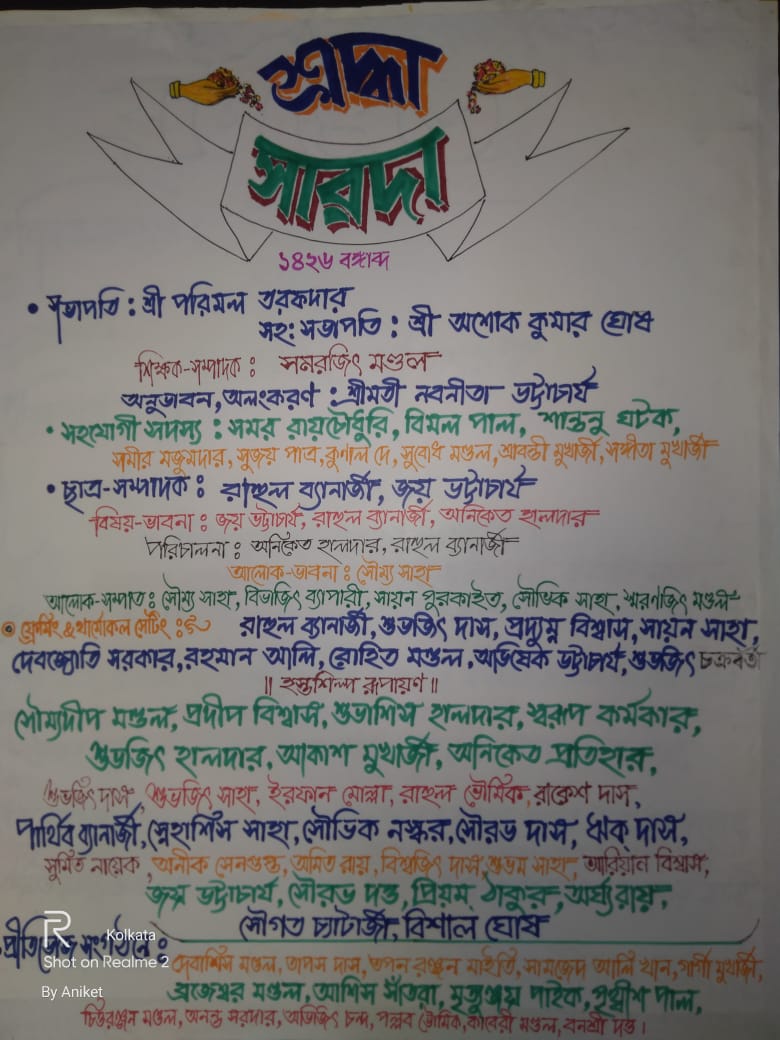 শ্রদ্ধা
সারদা
১৪২৬ বঙ্গাব্দ
• সভাপতি : শ্রী পরিমল তরফদার
সহ: সভাপতি : শ্রী অশোক কুমার ঘোষ
শিক্ষক-সম্পাদক : সমরজিৎ মণ্ডল
অনুভাবন, অলংকরণ : শ্রীমতী নবনীতা ভট্টাচার্য
• সহযোগী সদস্য : সমর রায়চৌধুরি, বিমল পাল, শান্তনু ঘটক,
সমীর মজুমদার, সুজয় পাত্র, কুণাল দে, সুবোধ মণ্ডল, শ্রাবন্তী মুখার্জী, সঙ্গীতা মুখার্জী
• ছাত্র-সম্পাদক : রাহুল ব্যানার্জী, জয় ভট্টাচার্য
বিষয়-ভাবনা : জয় ভট্টাচার্য, রাহুল ব্যানার্জী, অনিকেত হালদার
পরিচালনা : অনিকেত হালদার, রাহুল ব্যানার্জী
আলোক-ভাবনা : সৌম্য সাহা
আলোক-সম্পাত : সৌম্য সাহা, বিভাজিৎ ব্যাপারী, সায়ন পুরকাইত, সৌভিক সাহা, স্মরণজিৎ মণ্ডল
ফ্রেমিং & থার্মোকল সেটিং : রাহুল ব্যানার্জী, শুভজিৎ দাস, প্রদ্যুম্ন বিশ্বাস, সায়ন সাহা,
দেবজ্যোতি সরকার, রহমান আলি, রোহিত মণ্ডল, অভিষেক ভট্টাচার্য, শুভজিৎ চক্রবর্তী
॥ হস্তশিল্প রূপায়ণ ॥
সৌম্যদীপ মণ্ডল, প্রদীপ বিশ্বাস, শুভাশিস হালদার, স্বরূপ কর্মকার,
শুভজিৎ হালদার, আকাশ মুখার্জী, অনিকেত প্রতিহার,
শুভজিৎ দাস, শুভজিৎ সাহা, ইরফান মোল্লা, রাহুল ভৌমিক, রাকেশ দাস,
পার্থিব ব্যানার্জী, স্নেহাশিস সাহা, সৌভিক নস্কর, সৌরভ দাস, ঋক্ দাস,
সুমিত নায়েক, অনীক সেনগুপ্ত, অমিত রায়, বিশ্বজিৎ দাস, শুভম সাহা, আরিয়ান বিশ্বাস,
জয় ভট্টাচার্য, সৌরভ দত্ত, প্রিয়ম ঠাকুর, অর্ঘ্য রায়,
সৌগত চ্যাটার্জী, বিশাল ঘোষ
প্রীতিভোজ সংগঠনে :
দেবাশিস মণ্ডল, তাপস দাস, তপন রঞ্জন মাইতি, সামজেদ আলি খান, গার্গী মুখার্জী,
ব্রজেশ্বর মণ্ডল, আশিস সাঁতরা, মৃত্যুঞ্জয় পাইক, পৃথ্বীশ পাল,
চিত্তরঞ্জন মণ্ডল, অনন্ত সরদার, অভিজিৎ চন্দ, পল্লব ভৌমিক, কাবেরী মণ্ডল, বনশ্রী দত্ত।
R Kolkata
Shot on Realme 2
By Aniket